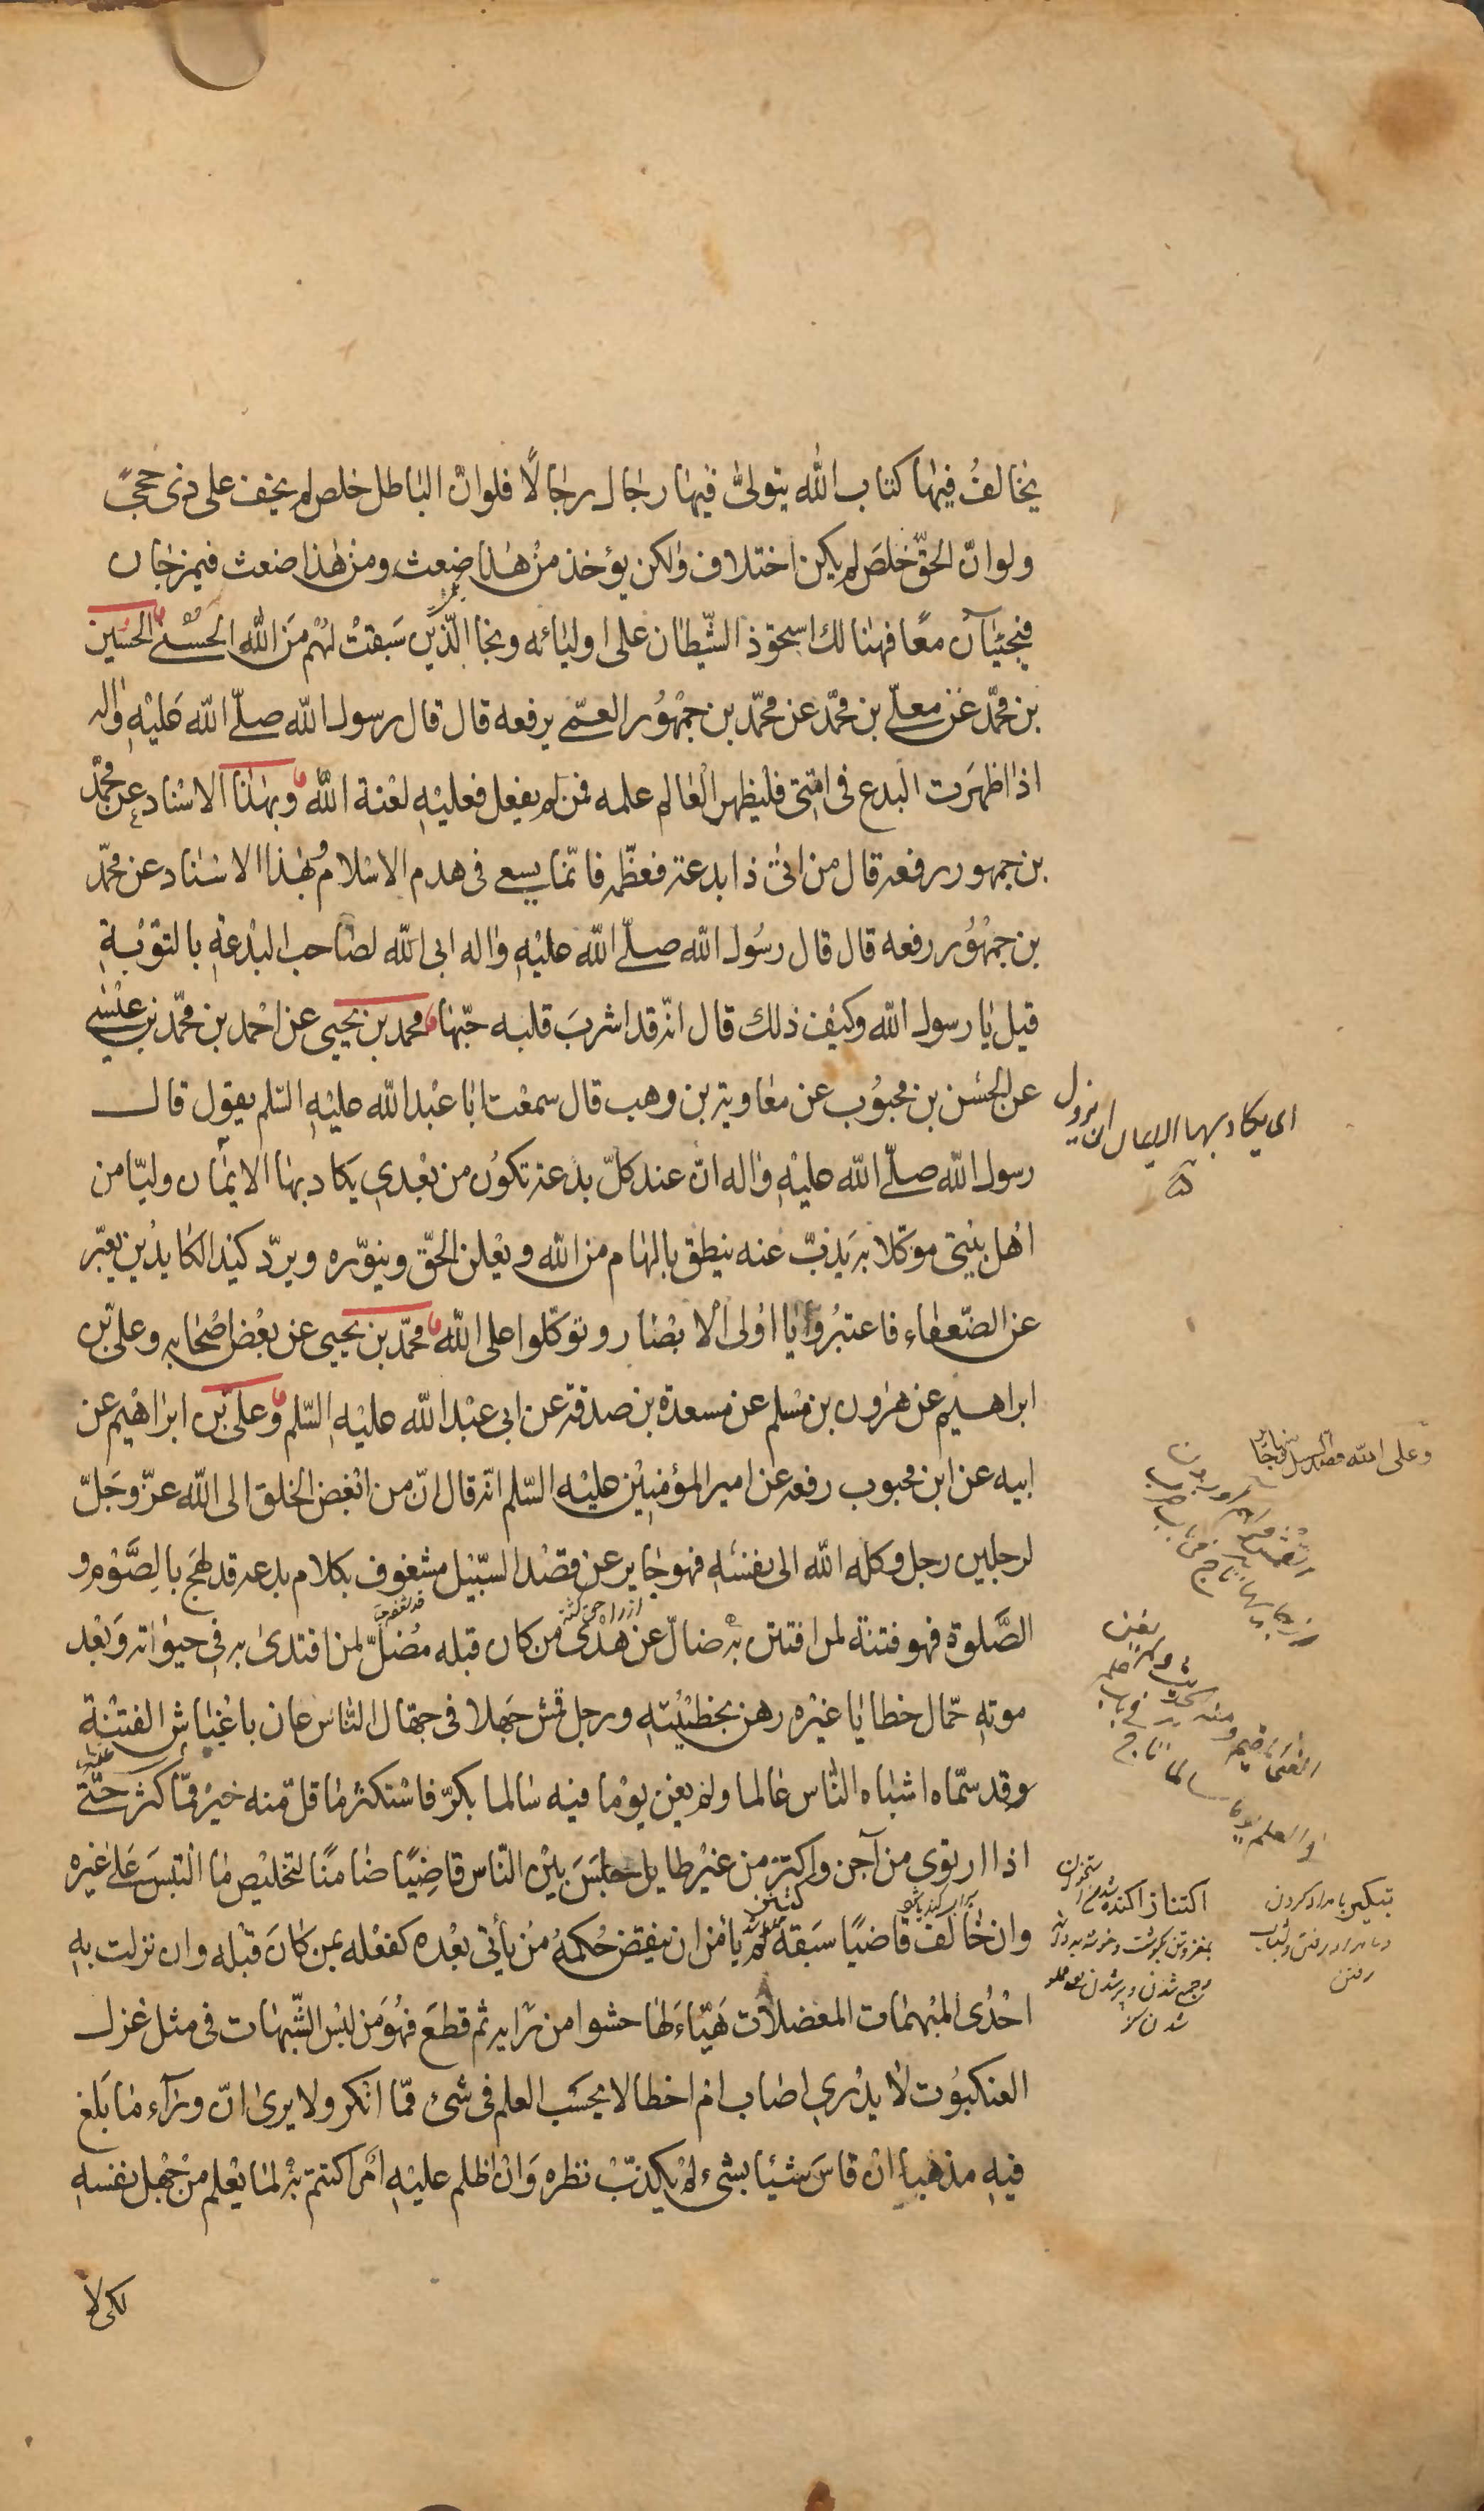 يخالف فيها كتاب الله يتولى فيها رجال رجالا فلو ان الباطل خلص لم يخف على ذى حجى
ولو ان الحق خلص لم يكن اختلاف ولكن يؤخذ من هذا ضغث ومن هذا ضغث فيمزجان
فيجيئان معا فهنالك استحوذ الشيطان على اوليائه ونجا الذين سبقت لهم من الله الحسنى الحسين
بن محمد عن معلى بن محمد عن محمد بن جمهور العمى يرفعه قال قال رسول الله صلى الله عليه واله
اذا ظهرت البدع فى امتى فليظهر العالم علمه فمن لم يفعل فعليه لعنة الله وبهذا الاسناد عن محمد
بن جمهور رفعه قال من اتى ذا بدعة فعظمه فانما يسعى فى هدم الاسلام وبهذا الاسناد عن محمد
بن جمهور رفعه قال قال رسول الله صلى الله عليه واله ابى الله لصاحب البدعة بالتوبة
قيل يا رسول الله وكيف ذلك قال انه قد اشرب قلبه حبها محمد بن يحيى عن احمد بن محمد بن عيسى
عن الحسن بن محبوب عن معاوية بن وهب قال سمعت ابا عبد الله عليه السلم يقول قال
رسول الله صلى الله عليه واله ان عند كل بدعة تكون من بعدى يكاد بها الايمان وليا من
اهل بيتى موكلا به يذب عنه ينطق بالهام من الله ويعلن الحق وينوره ويرد كيد الكايدين يعبر
عن الضعفاء فاعتبروا يا اولى الابصار وتوكلوا على الله محمد بن يحيى عن بعض اصحابه وعلى بن
ابراهيم عن هرون بن مسلم عن مسعدة بن صدقة عن ابى عبد الله عليه السلم وعلى بن ابراهيم عن
ابيه عن ابن محبوب رفعه عن امير المؤمنين عليه السلم انه قال ان من ابغض الخلق الى الله عز وجل
لرجلين رجل وكله الله الى نفسه فهو جاير عن قصد السبيل مشغوف بكلام بدعه قد لهج بالصوم و
الصلوة فهو فتنة لمن افتتن به ضال عن هدى من كان قبله مضل لمن اقتدى به فى حيواته وبعد
موته حمال خطايا غيره رهن بخطيئته ورجل قمش جهلا فى جهال الناس عان باغباش الفتنة
وقد سماه اشباه الناس عالما ولم يغن يوما فيه سالما بكر فاستكثر ما قل منه خير مما كثر حتى
اذا ارتوى من آجن واكتنز من غير طايل جلس بين الناس قاضيا ضامنا لتخليص ما التبس على غيره
وان خالف قاضيا سبقه لم يأمن ان ينقض حكمه من يأتى بعده كفعله بمن كان قبله وان نزلت به
احدى المبهمات المعضلات هيأ لها حشوا من رايه ثم قطع فهو من لبس الشبهات فى مثل غزل
العنكبوت لا يدرى اصاب ام اخطا لا يحسب العلم فى شئ مما انكر ولا يرى ان وراء ما بلغ
فيه مذهبا ان قاس شيئا بشىء لم يكذب نظره وان اظلم عليه امر اكتتم به لما يعلم من جهل نفسه
لكى لا
اى يكاد بها الايمان ان يزول
وعلى الله قصد السبيل ومنها جائر
تبكير بامداد كردن